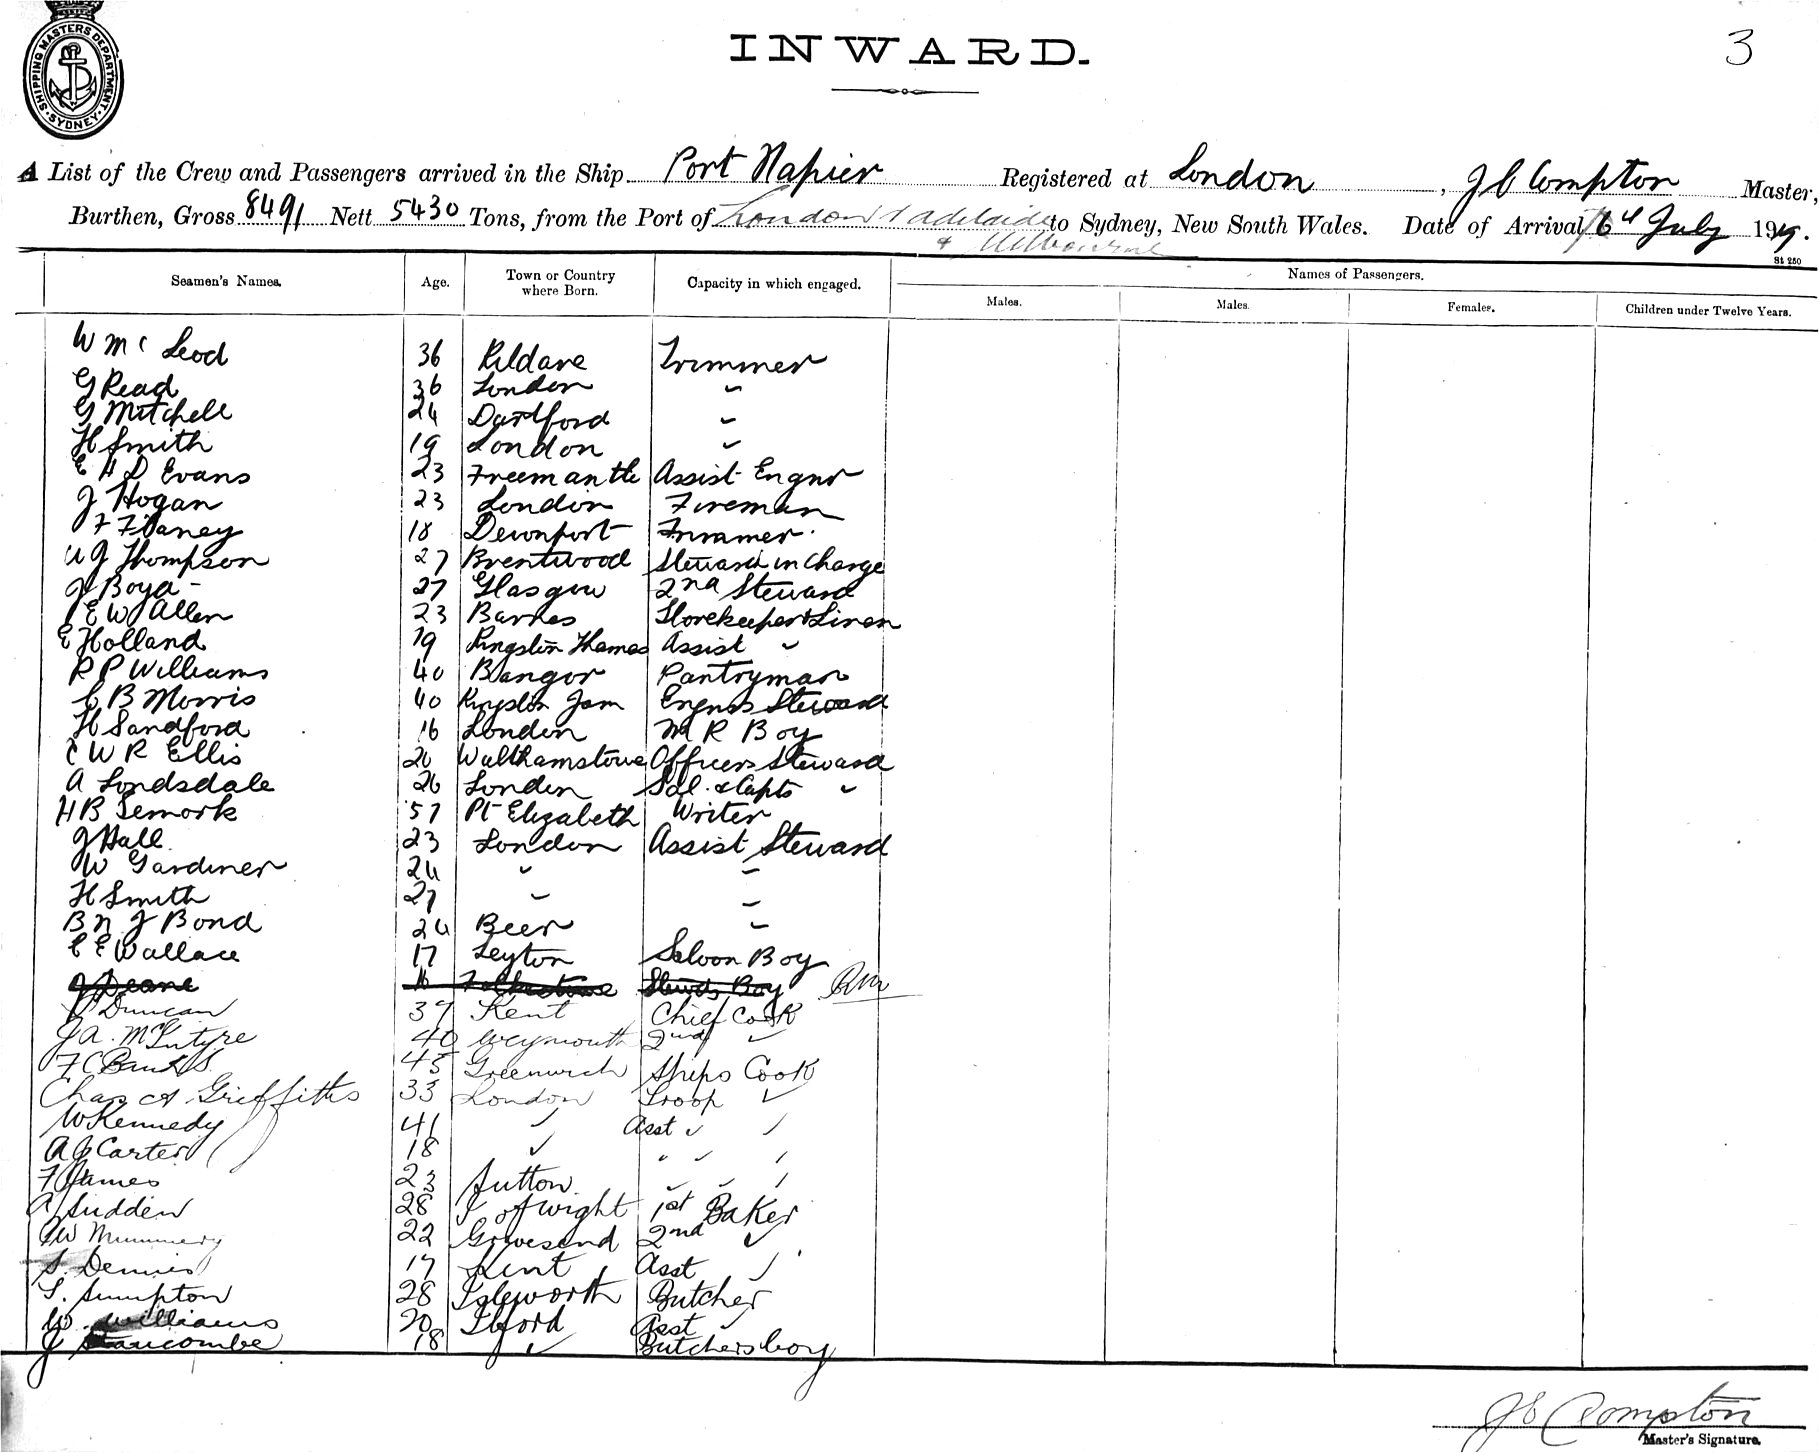 SHIPPING MASTERS DEPARTMENT. SYDNEY.
INWARD.
3
A List of the Crew and Passengers arrived in the Ship Port Napier Registered at London, J C Compton Master,
Burthen, Gross 8491 Nett 5430 Tons, from the Port of London & Adelaide & Melbourne to Sydney, New South Wales. Date of Arrival 6th July 1919.
St 250
Seamen's Names. Age. Town or Country where Born. Capacity in which engaged. Names of Passengers.
Males. Males. Females. Children under Twelve Years.
W McLeod 36 Kildare Trimmer
G Read 36 London "
G Mitchell 24 Dartford "
H Smith 19 London "
E H D Evans 23 Freemantle Assist Engnr
J Hogan 23 London Fireman
F 18 Devonport Trimmer
W J Thompson 27 Brentwood Steward in Charge
J Boyd 27 Glasgow 2nd Steward
E W Allen 23 Barnes Storekeeper & Linen
E Holland 19 Kingston Thames Assist "
R P Williams 40 Bangor Pantryman
C B Morris 40 Kingston Jam Engnrs Steward
H Sandford 16 London M R Boy
C W R Ellis 20 Walthamstowe Officers Steward
A Londsdale 26 London Sal. & Capts "
H B Semork 57 Pt Elizabeth Writer
J Hall 23 London Assist Steward
W Gardiner 24 " "
H Smith 27 " "
B N J Bond 24 Beer "
E E Wallace 17 Leyton Saloon Boy
J Deane 16 Folkestone Stewds Boy
Duncan 37 Kent Chief Cook
J A. McIntyre 40 Weymouth 2nd "
F C Banks 45 Greenwich Ships Cook
Chas A Griffiths 33 London Troop "
W Kennedy 41 " Asst " "
A J Carter 18 " " " "
F James 23 Sutton " " "
A Sudden 28 I of Wight 1st Baker
W Mummery 22 Gravesend 2nd "
S. Dennis 17 Kent Asst "
S. Sumpton 28 Isleworth Butcher
W. Williams 20 Ilford Asst "
J 18 " Butchersboy
J C Compton
Master's Signature.